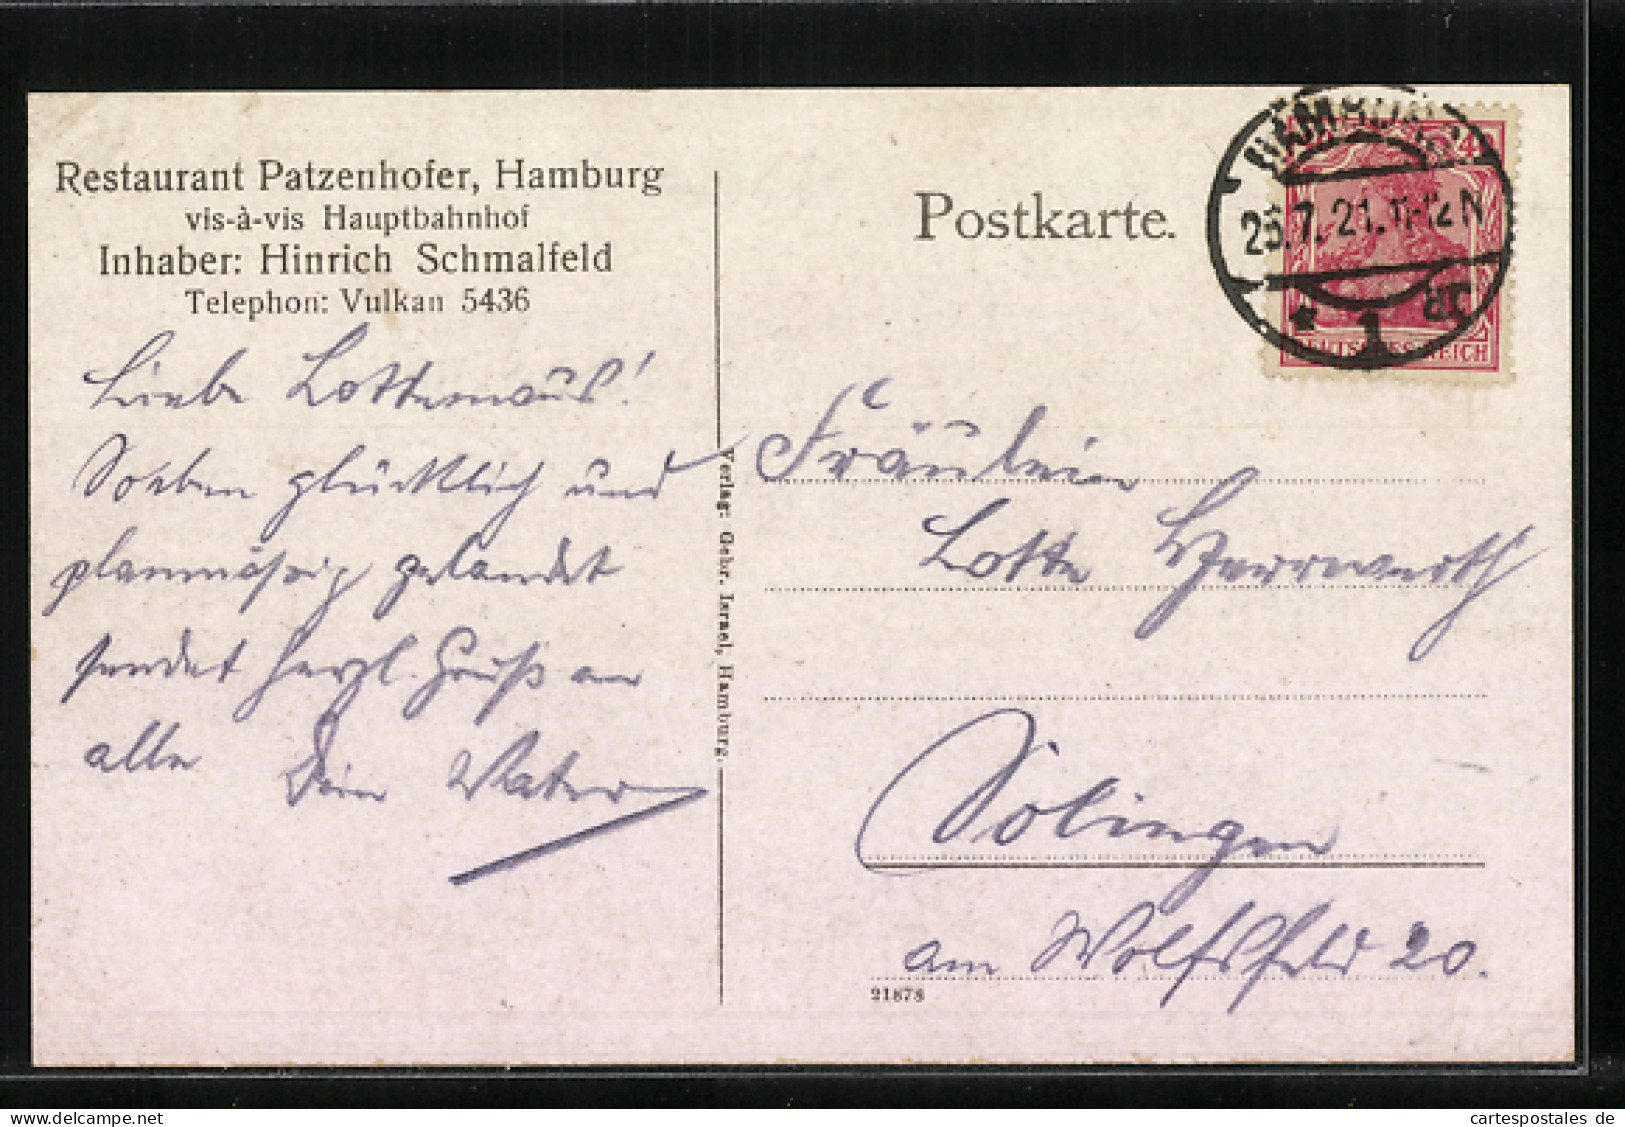 Restaurant Patzenhofer, Hamburg
vis-à-vis Hauptbahnhof
Inhaber: Hinrich Schmalfeld
Telephon: Vulkan 5436
Liebe Lottemaus!
Soeben glücklich und
planmäßig gelandet
sendet herzl. Gruß an
alle Dein Vater
Verlag: Gebr. Israel, Hamburg.
Postkarte.
HAMBURG
26.7.21.11-12N
* 1
DEUTSCHES REICH
Fräulein
Lotte
Solingen
am Wolfsfeld 20.
21878
cartespostales de